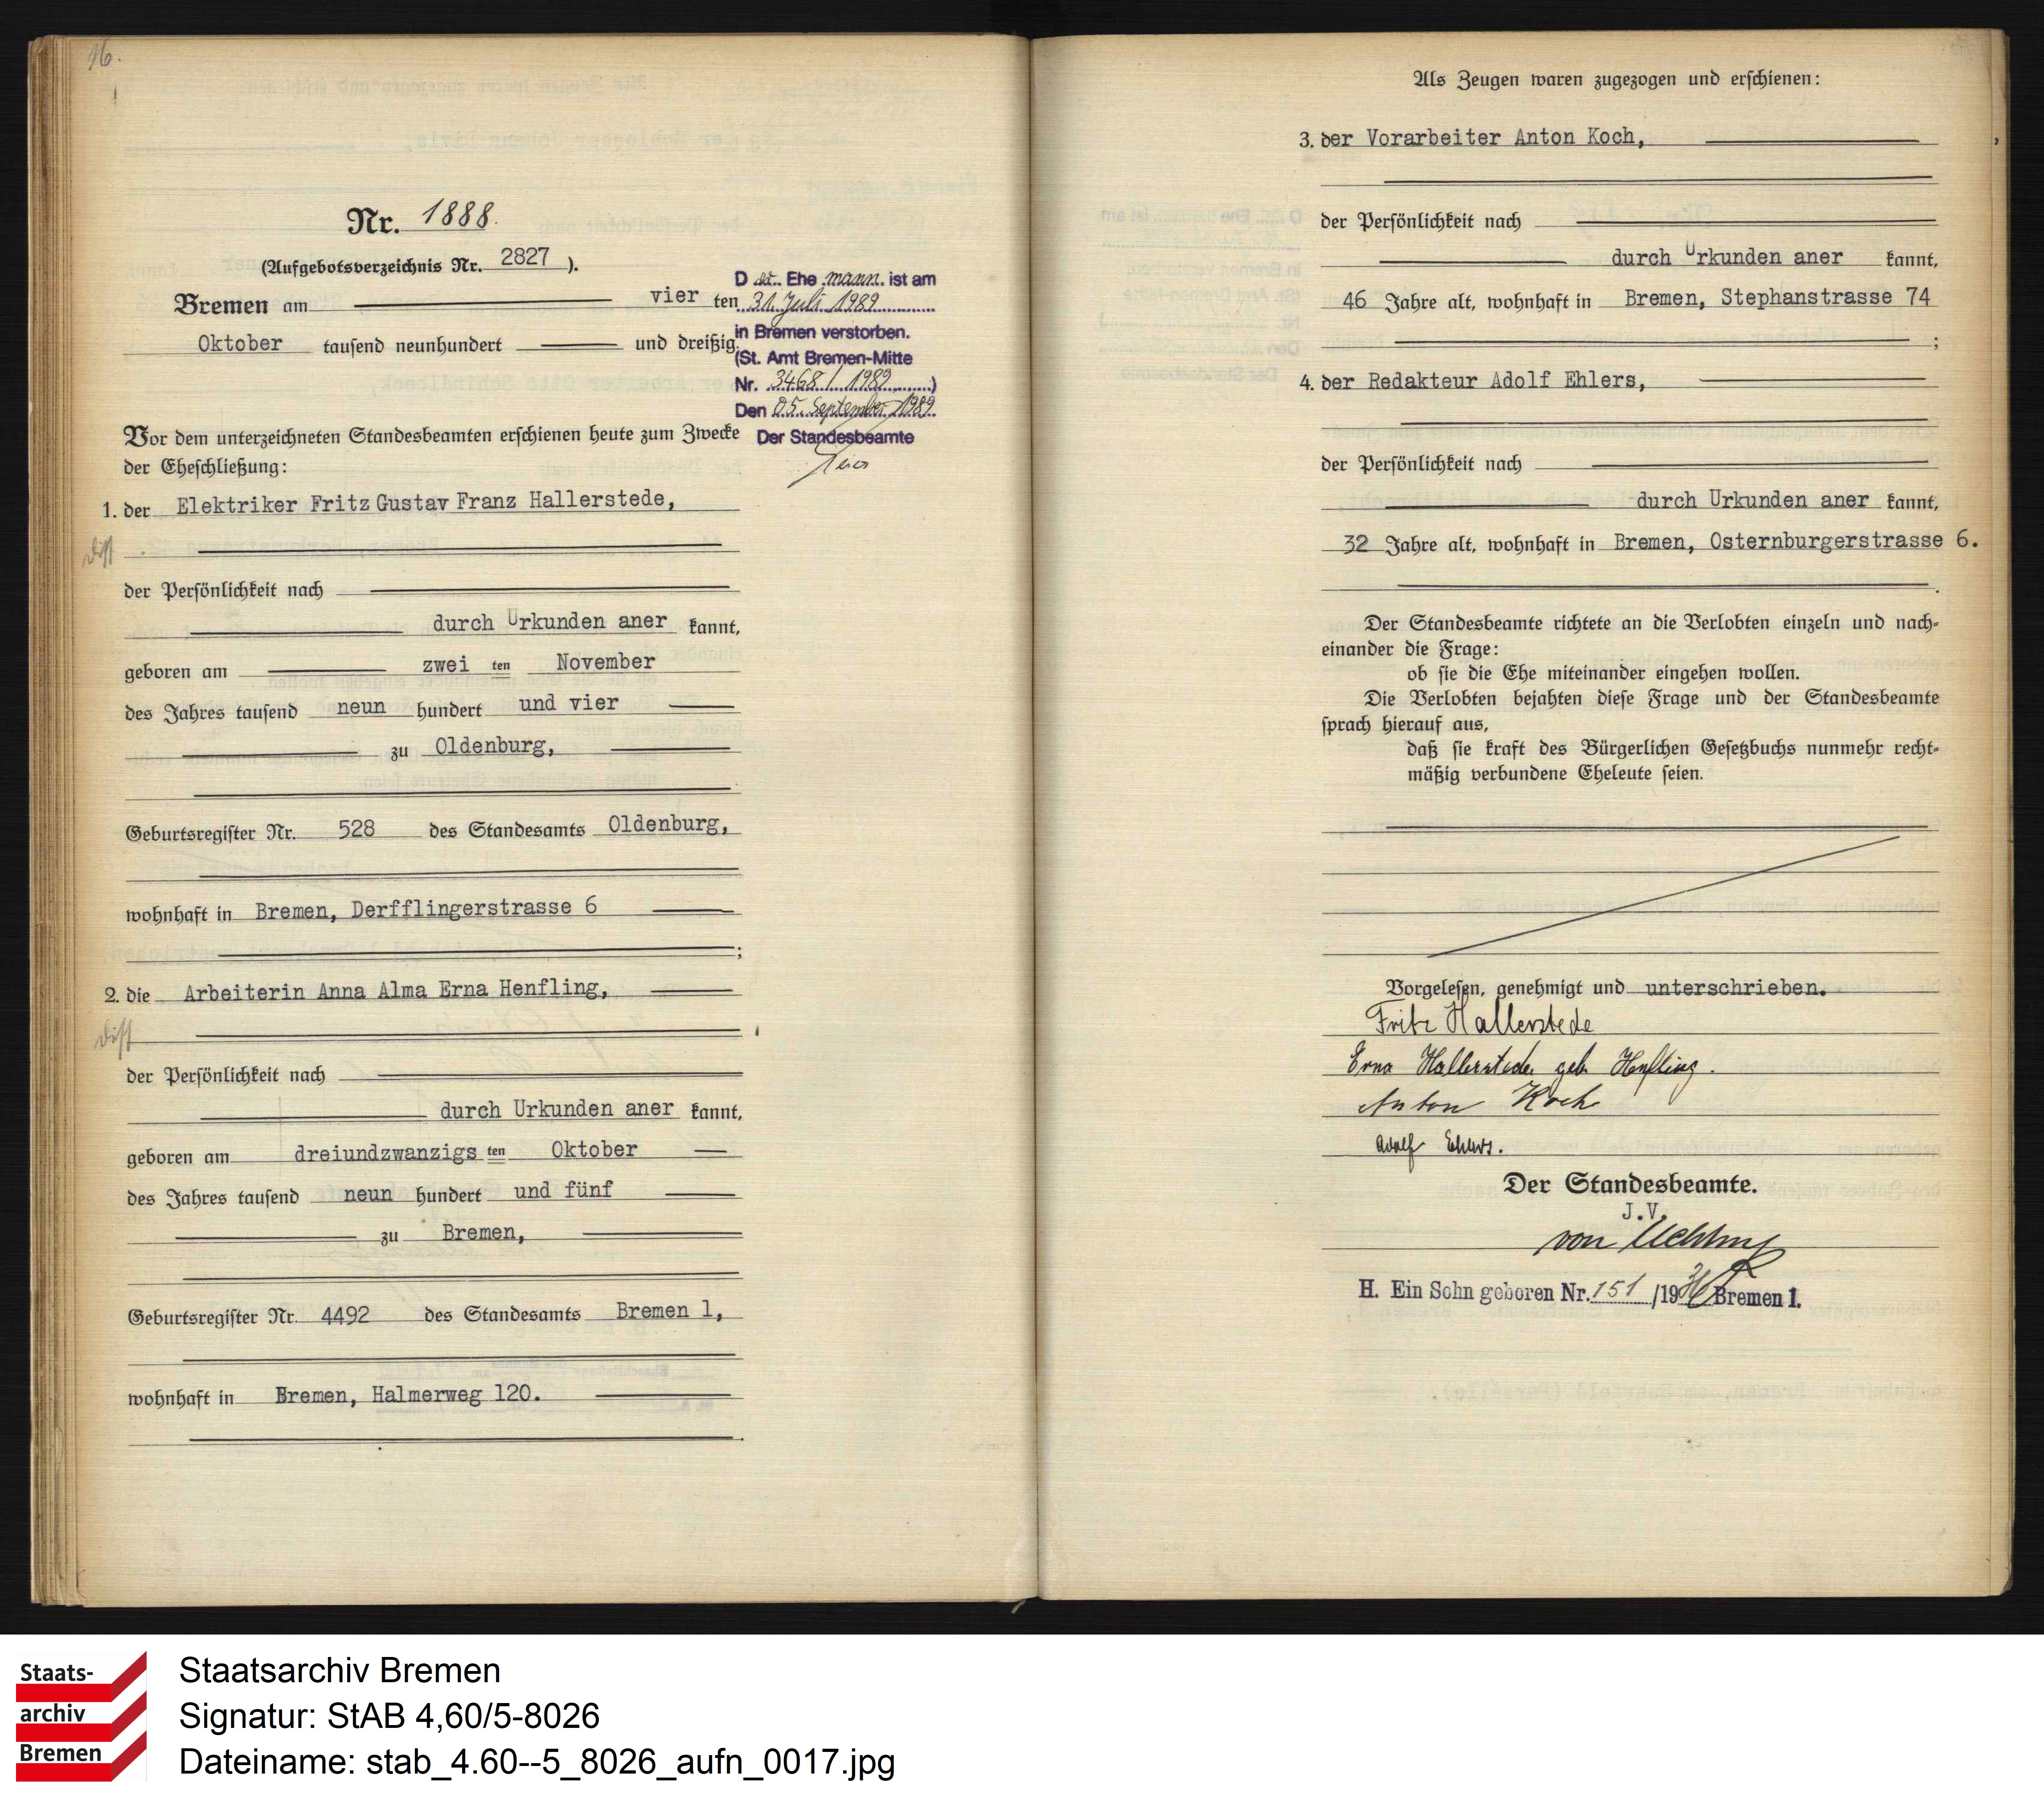 16.
Nr. 1888.
(Aufgebotsverzeichnis Nr. 2827 ).
Bremen am vier ten
Oktober tausend neunhundert und dreißig.
D er Ehe mann ist am
31. Juli 1989
in Bremen verstorben.
(St. Amt Bremen-Mitte
Nr. 3468 / 1989 )
Den 05. September 1989
Der Standesbeamte
Vor dem unterzeichneten Standesbeamten erschienen heute zum Zwecke
der Eheschließung:
1. der Elektriker Fritz Gustav Franz Hallerstede,
diss
der Persönlichkeit nach
durch Urkunden aner kannt,
geboren am zwei ten November
des Jahres tausend neun hundert und vier
zu Oldenburg,
Geburtsregister Nr. 528 des Standesamts Oldenburg,
wohnhaft in Bremen, Derfflingerstrasse 6
;
2. die Arbeiterin Anna Alma Erna Henfling,
diss
der Persönlichkeit nach
durch Urkunden aner kannt,
geboren am dreiundzwanzigs ten Oktober
des Jahres tausend neun hundert und fünf
zu Bremen,
Geburtsregister Nr. 4492 des Standesamts Bremen 1,
wohnhaft in Bremen, Halmerweg 120.
Als Zeugen waren zugezogen und erschienen:
3. der Vorarbeiter Anton Koch,
der Persönlichkeit nach
durch Urkunden aner kannt,
46 Jahre alt, wohnhaft in Bremen, Stephanstrasse 74
;
4. der Redakteur Adolf Ehlers,
der Persönlichkeit nach
durch Urkunden aner kannt,
32 Jahre alt, wohnhaft in Bremen, Osternburgerstrasse 6.
Der Standesbeamte richtete an die Verlobten einzeln und nach-
einander die Frage:
ob sie die Ehe miteinander eingehen wollen.
Die Verlobten bejahten diese Frage und der Standesbeamte
sprach hierauf aus,
daß sie kraft des Bürgerlichen Gesetzbuchs nunmehr recht-
mäßig verbundene Eheleute seien.
Vorgelesen, genehmigt und unterschrieben.
Fritz Hallerstede
Erna Hallerstede geb. Henfling.
Anton Koch
Adolf Ehlers.
Der Standesbeamte.
J.V.
von
H. Ein Sohn geboren Nr. 151 /19 Bremen 1.
Staats-
archiv
Bremen
Staatsarchiv Bremen
Signatur: StAB 4,60/5-8026
Dateiname: stab_4.60--5_8026_aufn_0017.jpg